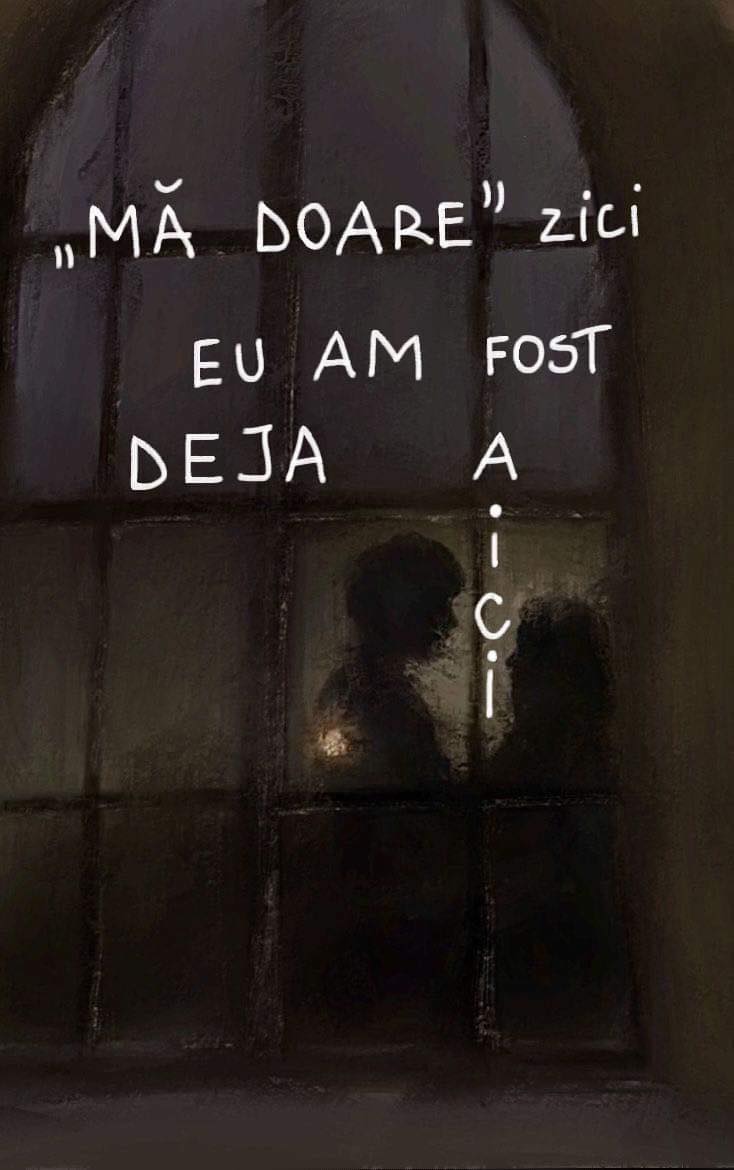 „MĂ DOARE” zici
EU AM FOST
DEJA Aici